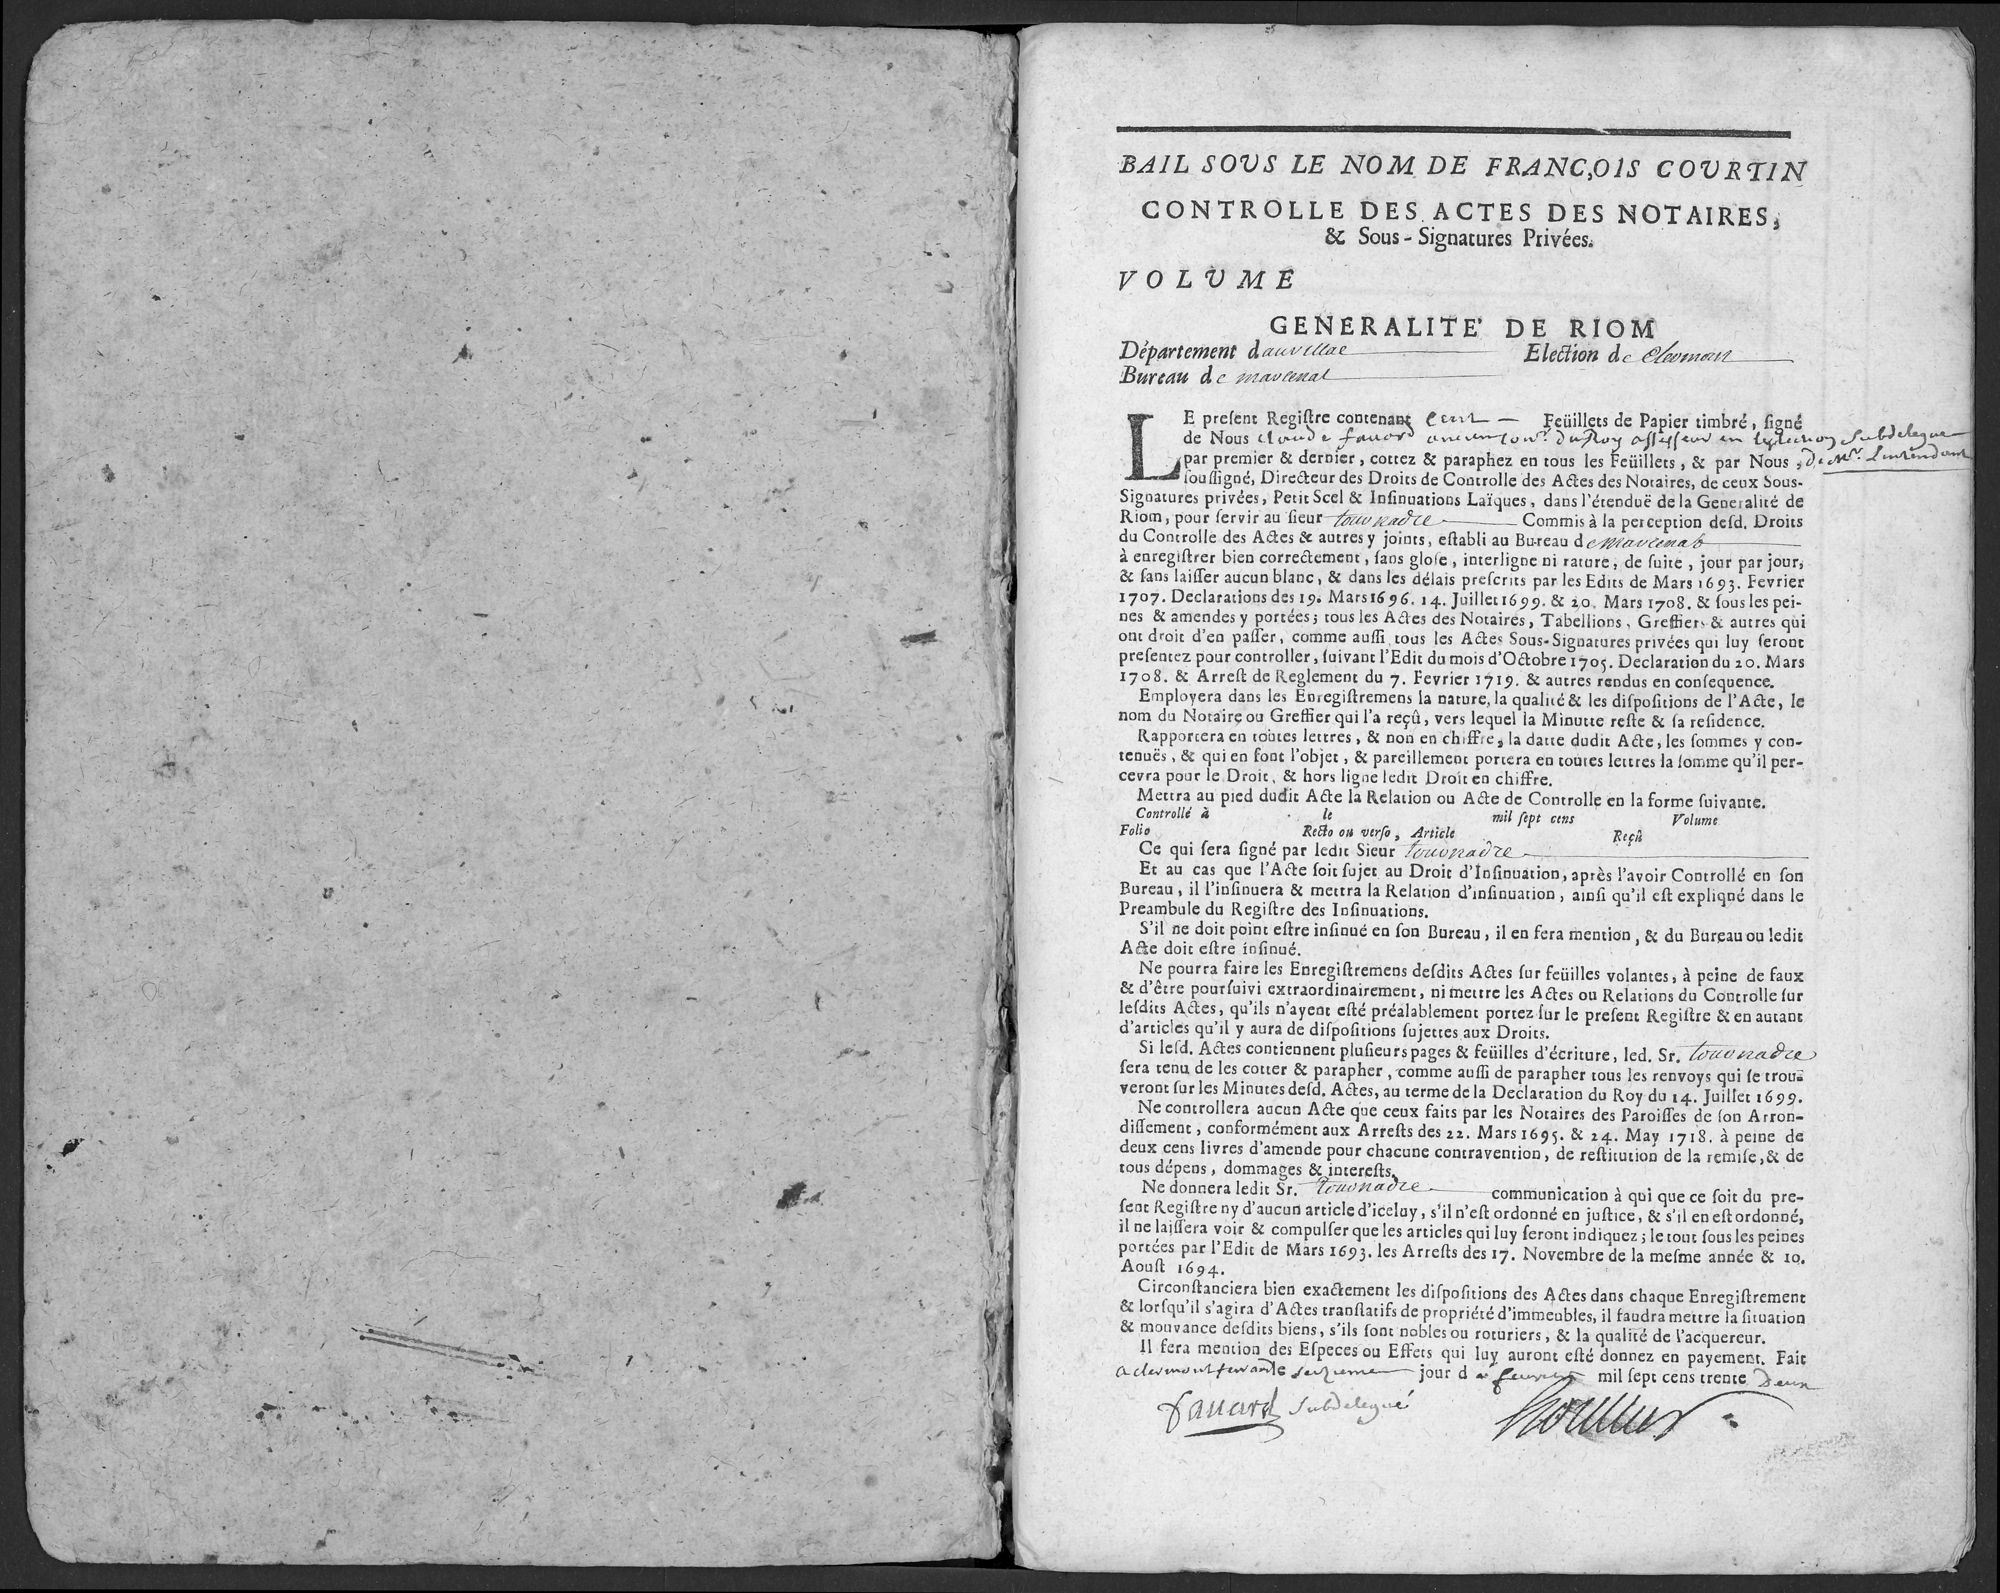 BAIL SOUS LE NOM DE FRANC,OIS COURTIN
CONTROLLE DES ACTES DES NOTAIRES,
& Sous-Signatures Privées.
VOLUME
GENERALITE' DE RIOM
Département dauvillac Election de clermont
Bureau de marcenat
LE preſent Regiſtre contenant Cent Feüillets de Papier timbré, ſigné
de Nous claude favard ancien conr. du Roy assesseur en leslection Subdelegue
par premier & dernier, cottez & paraphez en tous les Feüillets, & par Nous, de Mr. Lintendant
ſouſſigné, Directeur des Droits de Controlle des Actes des Notaires, de ceux Sous-
Signatures privées, Petit Scel & Inſinuations Laïques, dans l'étenduë de la Generalité de
Riom, pour ſervir au ſieur tournadre Commis à la perception deſd. Droits
du Controlle des Actes & autres y joints, eſtabli au Bureau de marcenat
à enregiſtrer bien correctement, ſans gloſe, interligne ni rature, de ſuite, jour par jour,
& ſans laiſſer aucun blanc, & dans les délais preſcrits par les Edits de Mars 1693. Fevrier
1707. Declarations des 19. Mars 1696. 14. Juillet 1699. & 20. Mars 1708. & ſous les pei-
nes & amendes y portées; tous les Actes des Notaires, Tabellions, Greffiers & autres qui
ont droit d'en paſſer, comme auſſi tous les Actes Sous-Signatures privées qui luy ſeront
preſentez pour controller, ſuivant l'Edit du mois d'Octobre 1705. Declaration du 20. Mars
1708. & Arreſt de Reglement du 7. Fevrier 1719. & autres rendus en conſequence.
Employera dans les Enregiſtremens la nature, la qualité & les diſpoſitions de l'Acte, le
nom du Notaire ou Greffier qui l'a reçû, vers lequel la Minutte reſte & ſa reſidence.
Rapportera en toutes lettres, & non en chiffre, la datte dudit Acte, les ſommes y con-
tenuës, & qui en font l'objet, & pareillement portera en toutes lettres la ſomme qu'il per-
cevra pour le Droit, & hors ligne ledit Droit en chiffre.
Mettra au pied dudit Acte la Relation ou Acte de Controlle en la forme ſuivante.
Controllé à le mil ſept cens Volume
Folio Recto ou verſo, Article Reçû
Ce qui ſera ſigné par ledit Sieur tournadre
Et au cas que l'Acte ſoit ſujet au Droit d'Inſinuation, après l'avoir Controllé en ſon
Bureau, il l'inſinuera & mettra la Relation d'inſinuation, ainſi qu'il eſt expliqué dans le
Preambule du Regiſtre des Inſinuations.
S'il ne doit point eſtre inſinué en ſon Bureau, il en fera mention, & du Bureau ou ledit
Acte doit eſtre inſinué.
Ne pourra faire les Enregiſtremens deſdits Actes ſur feüilles volantes, à peine de faux
& d'être pourſuivi extraordinairement, ni mettre les Actes ou Relations du Controlle ſur
leſdits Actes, qu'ils n'ayent eſté préalablement portez ſur le preſent Regiſtre & en autant
d'articles qu'il y aura de diſpoſitions ſujettes aux Droits.
Si leſd. Actes contiennent pluſieurs pages & feüilles d'écriture, led. Sr. tournadre
ſera tenu de les cotter & parapher, comme auſſi de parapher tous les renvoys qui ſe trou-
veront ſur les Minutes deſd. Actes, au terme de la Declaration du Roy du 14. Juillet 1699.
Ne controllera aucun Acte que ceux faits par les Notaires des Paroiſſes de ſon Arron-
diſſement, conformément aux Arreſts des 22. Mars 1695. & 24. May 1718. à peine de
deux cens livres d'amende pour chacune contravention, de reſtitution de la remiſe, & de
tous dépens, dommages & intereſts.
Ne donnera ledit Sr. tournadre communication à qui que ce ſoit du pre-
ſent Regiſtre ny d'aucun article d'iceluy, s'il n'eſt ordonné en juſtice, & s'il en eſt ordonné,
il ne laiſſera voir & compulſer que les articles qui luy ſeront indiquez; le tout ſous les peines
portées par l'Edit de Mars 1693. les Arreſts des 17. Novembre de la meſme année & 10.
Aouſt 1694.
Circonſtanciera bien exactement les diſpoſitions des Actes dans chaque Enregiſtrement
& lorſqu'il s'agira d'Actes tranſlatifs de propriété d'immeubles, il faudra mettre la ſituation
& mouvance deſdits biens, s'ils ſont nobles ou roturiers, & la qualité de l'acquereur.
Il fera mention des Eſpeces ou Effets qui luy auront eſté donnez en payement. Fait
a clermontferrand le seizieme jour de feuvrier mil ſept cens trente Deux
Favard Subdelegué